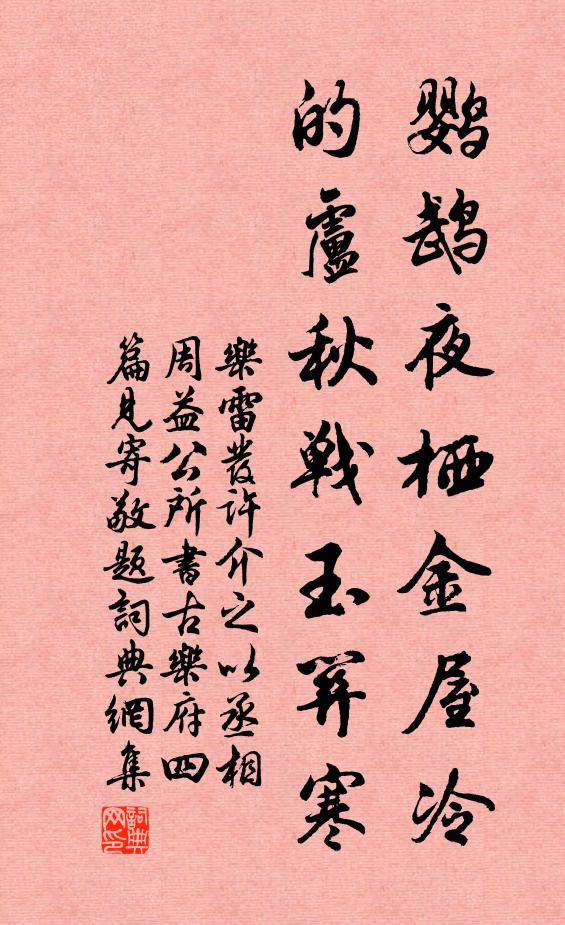 鹦鹉夜栖金屋冷
的盧秋戰玉羁寒
樂雷發許介之以丞相
周益公所書古樂府四
篇見寄敬題詞典網集
詞典网印